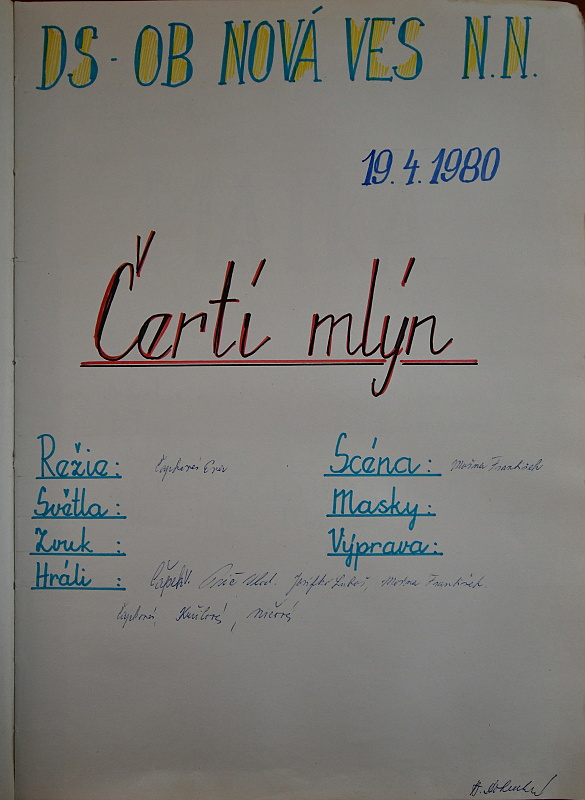 DS - OB NOVÁ VES N.N.
19.4.1980
Čertí mlýn
Režie: Čapková
Scéna: Mašna František
Světla:
Masky:
Zvuk :
Výprava:
Hráli : Čápek V. Josífko Luboš, Mašna František
Čapková,